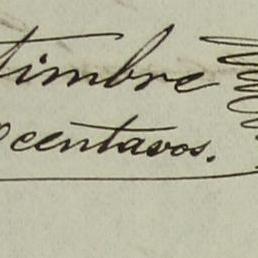 timbre
centavos.